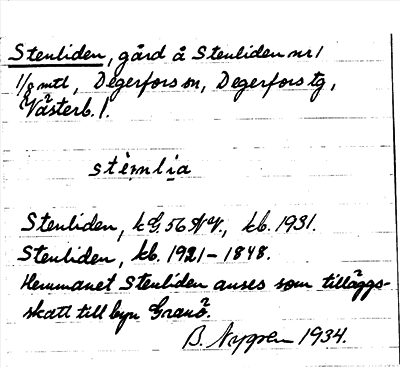 Stenliden, gård å Stenliden nr 1
1/8 mtl, Degerfors sn, Degerfors tg,
Västerb. l.
stèn̥lìa
Stenliden, kG. 56 NV., kb. 1931.
Stenliden, kb. 1921-1848.
Hemmanet Stenliden anses som tilläggs-
skatt till byn Granö.
B. Nygren 1934.